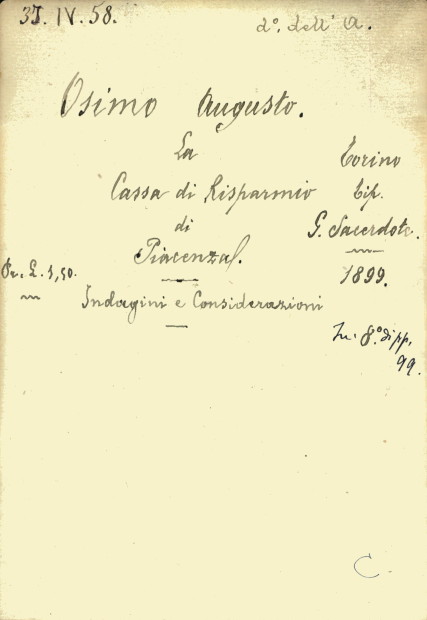 3J. IV. 58.
d°. dell' A.
Osimo Augusto.
La
Cassa di Risparmio
di
Piacenza.
Indagini e Considerazioni
Torino
Tip.
G. Sacerdote.
1899.
In. 8.° di pp.
99.
Pr. L. 1,50.
C.